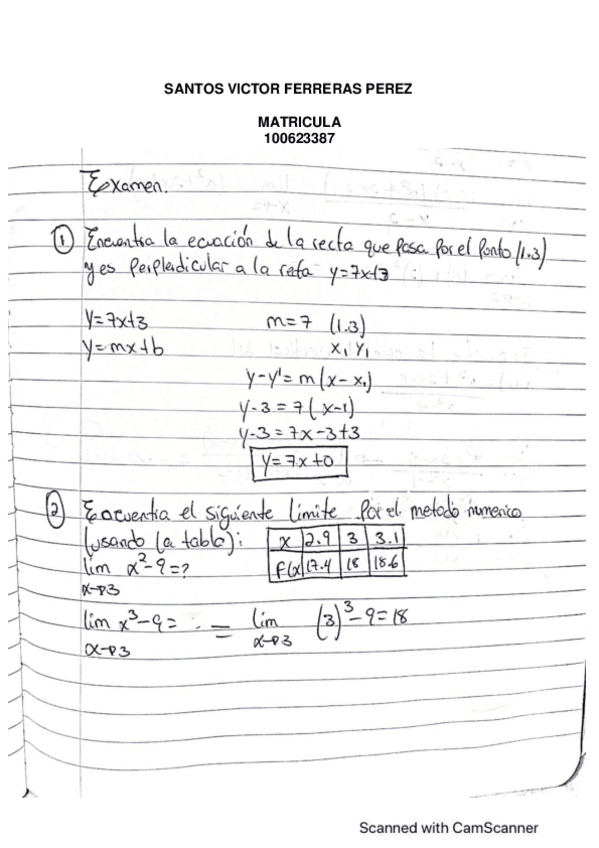 SANTOS VICTOR FERRERAS PEREZ
MATRICULA
100623387
Examen.
① Encuentra la ecuación de la recta que Pasa Por el Ponto (1.3)
y es Perpleidicular a la reta y=7x+3
y=7x+3 m=7 (1.3)
y=mx+b x₁ y₁
y-y'=m(x-x₁)
y-3=7(x-1)
y-3=7x-3+3
y=7x+0
② Encuentra el siguiente limite Por el metodo numerico
(usando la tabla): x 2.9 3 3.1
lim x²-9=? f(x) 17.4 18 18.6
x→3
lim x³-9= = lim (3)³-9=18
x→3 x→3
Scanned with CamScanner